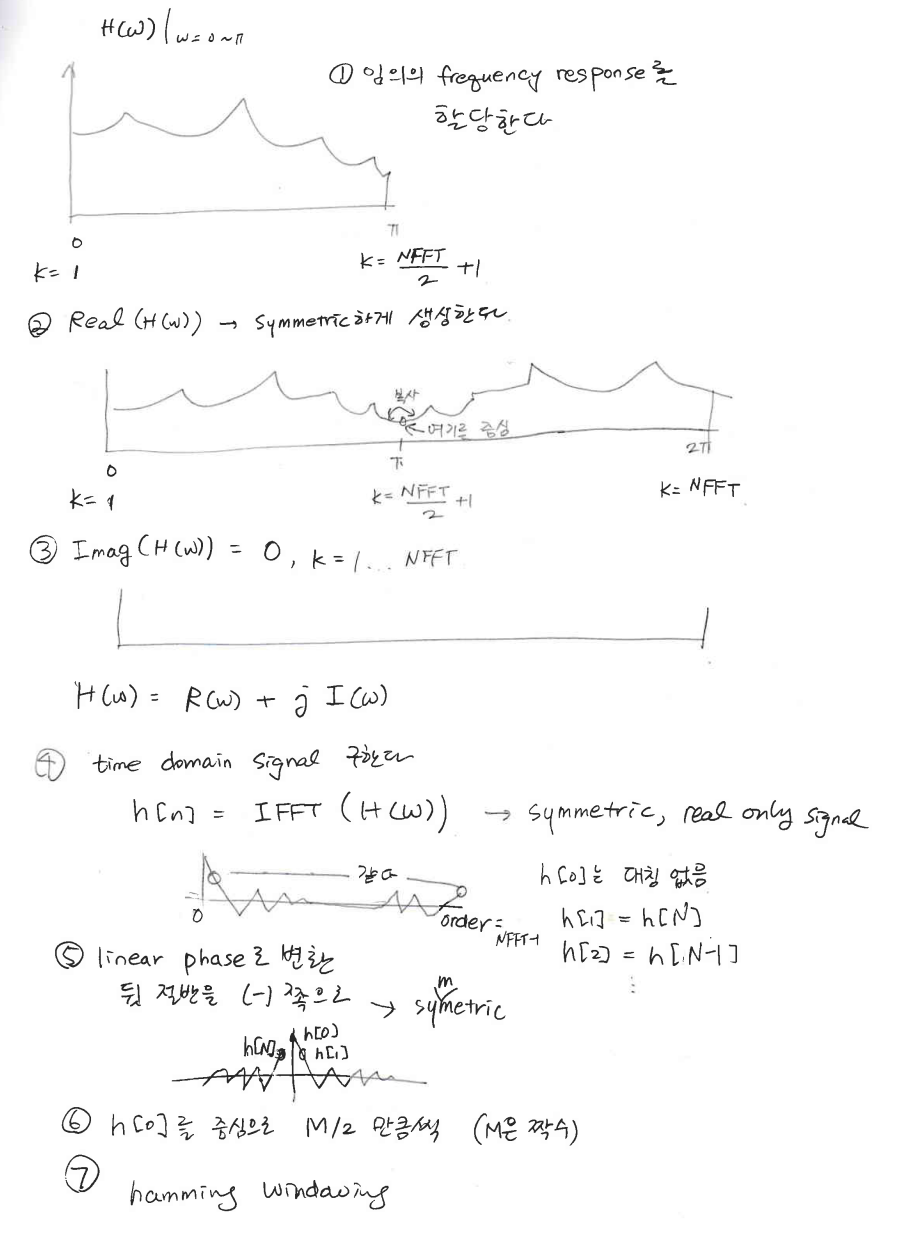 H(ω)|ω=0~π
① 임의의 frequency response를
할당한다
π
0
k= 1
k= NFFT/2 +1
② Real(H(ω)) → symmetric하게 생성한다.
복사
여기를 중심
0
π
2π
k= 1
k= NFFT/2 +1
k= NFFT
③ Imag(H(ω)) = 0, k=1... NFFT
H(ω) = R(ω) + j I(ω)
④ time domain signal 구한다
h[n] = IFFT (H(ω)) → symmetric, real only signal
같다
0
order= NFFT-1
h[0]는 대칭 없음
h[1] = h[N]
h[2] = h[N-1]
⋮
⑤ linear phase로 변환
뒷 절반을 (-)쪽으로 → symmetric
h[N] h[0]
h[1]
⑥ h[0]를 중심으로 M/2 만큼씩 (M은 짝수)
⑦ hamming windowing